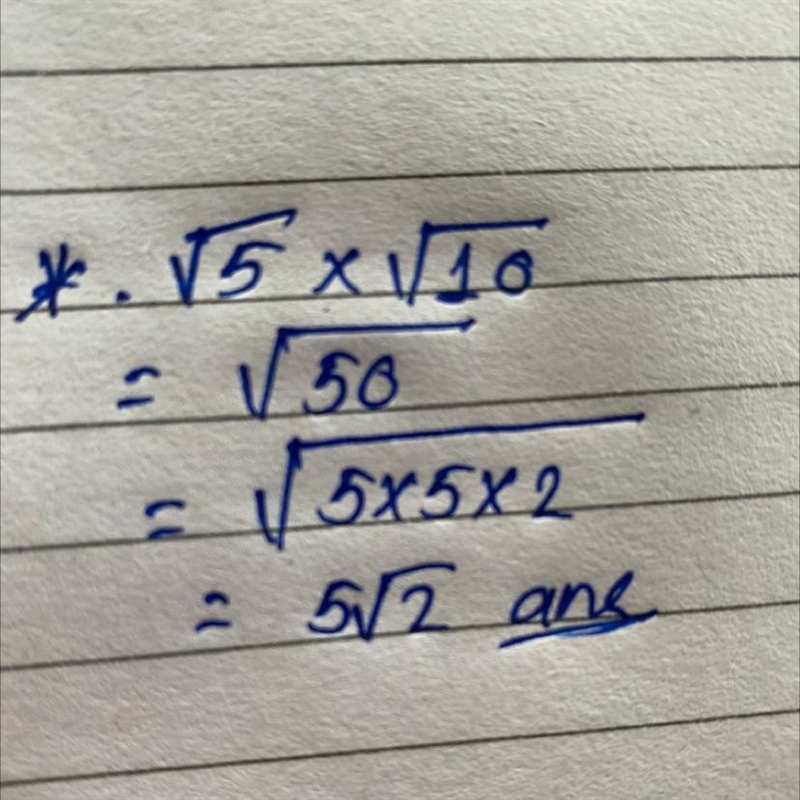 *. √5 × √10
= √50
= √5×5×2
= 5√2 ans